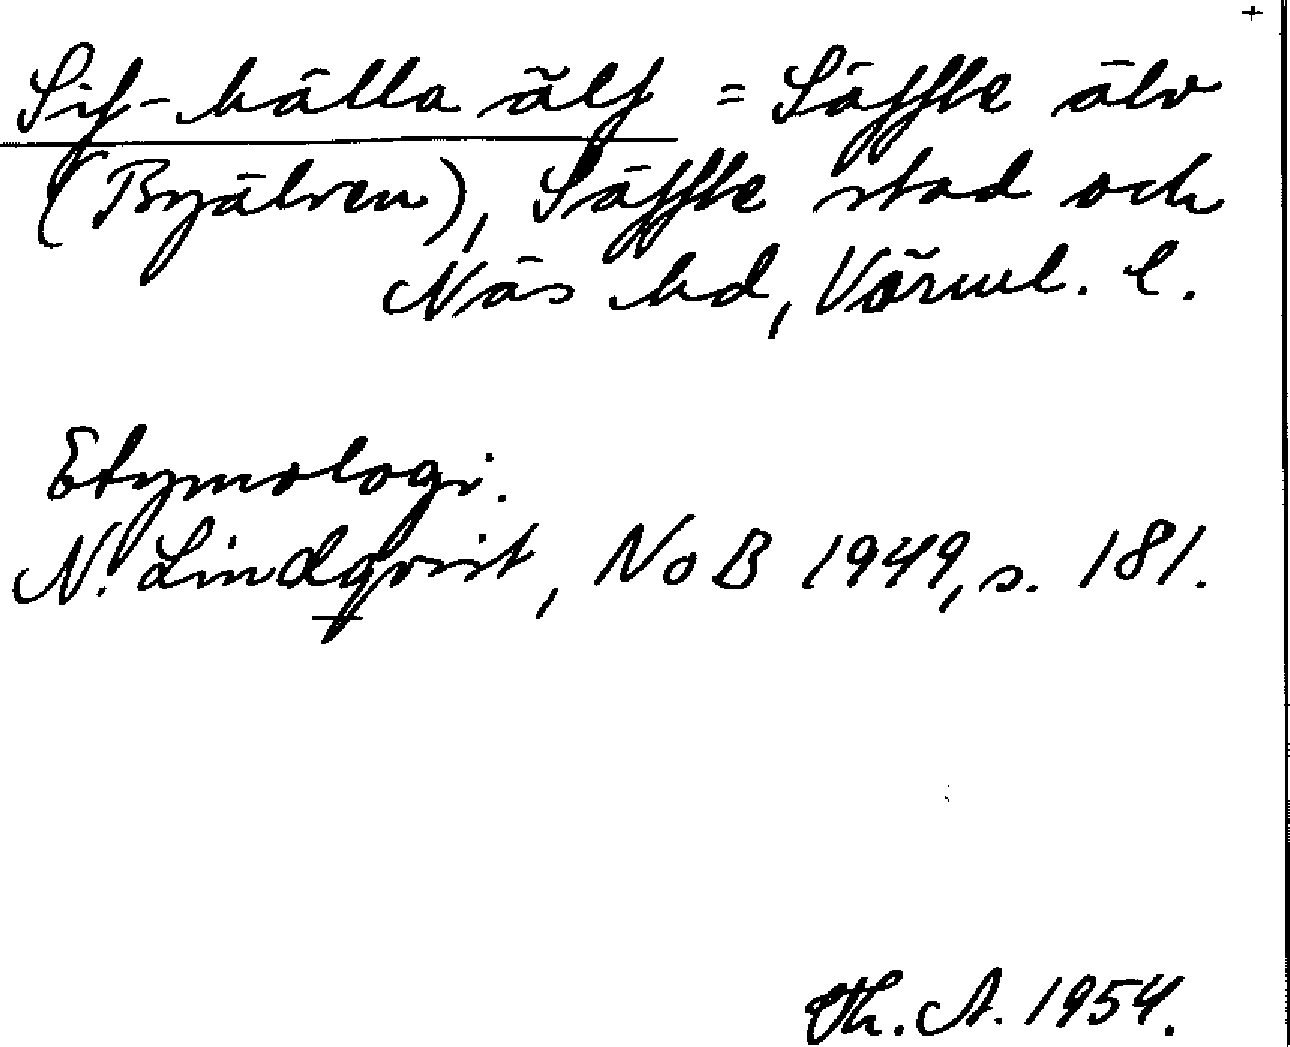 +
Sif-hälla älf = Säffle älv
(Byälven), Säffle stad och
Näs hd, Värml. l.
Etymologi.
N. Lindqvist, NoB 1949, s. 181.
Th. A. 1954.